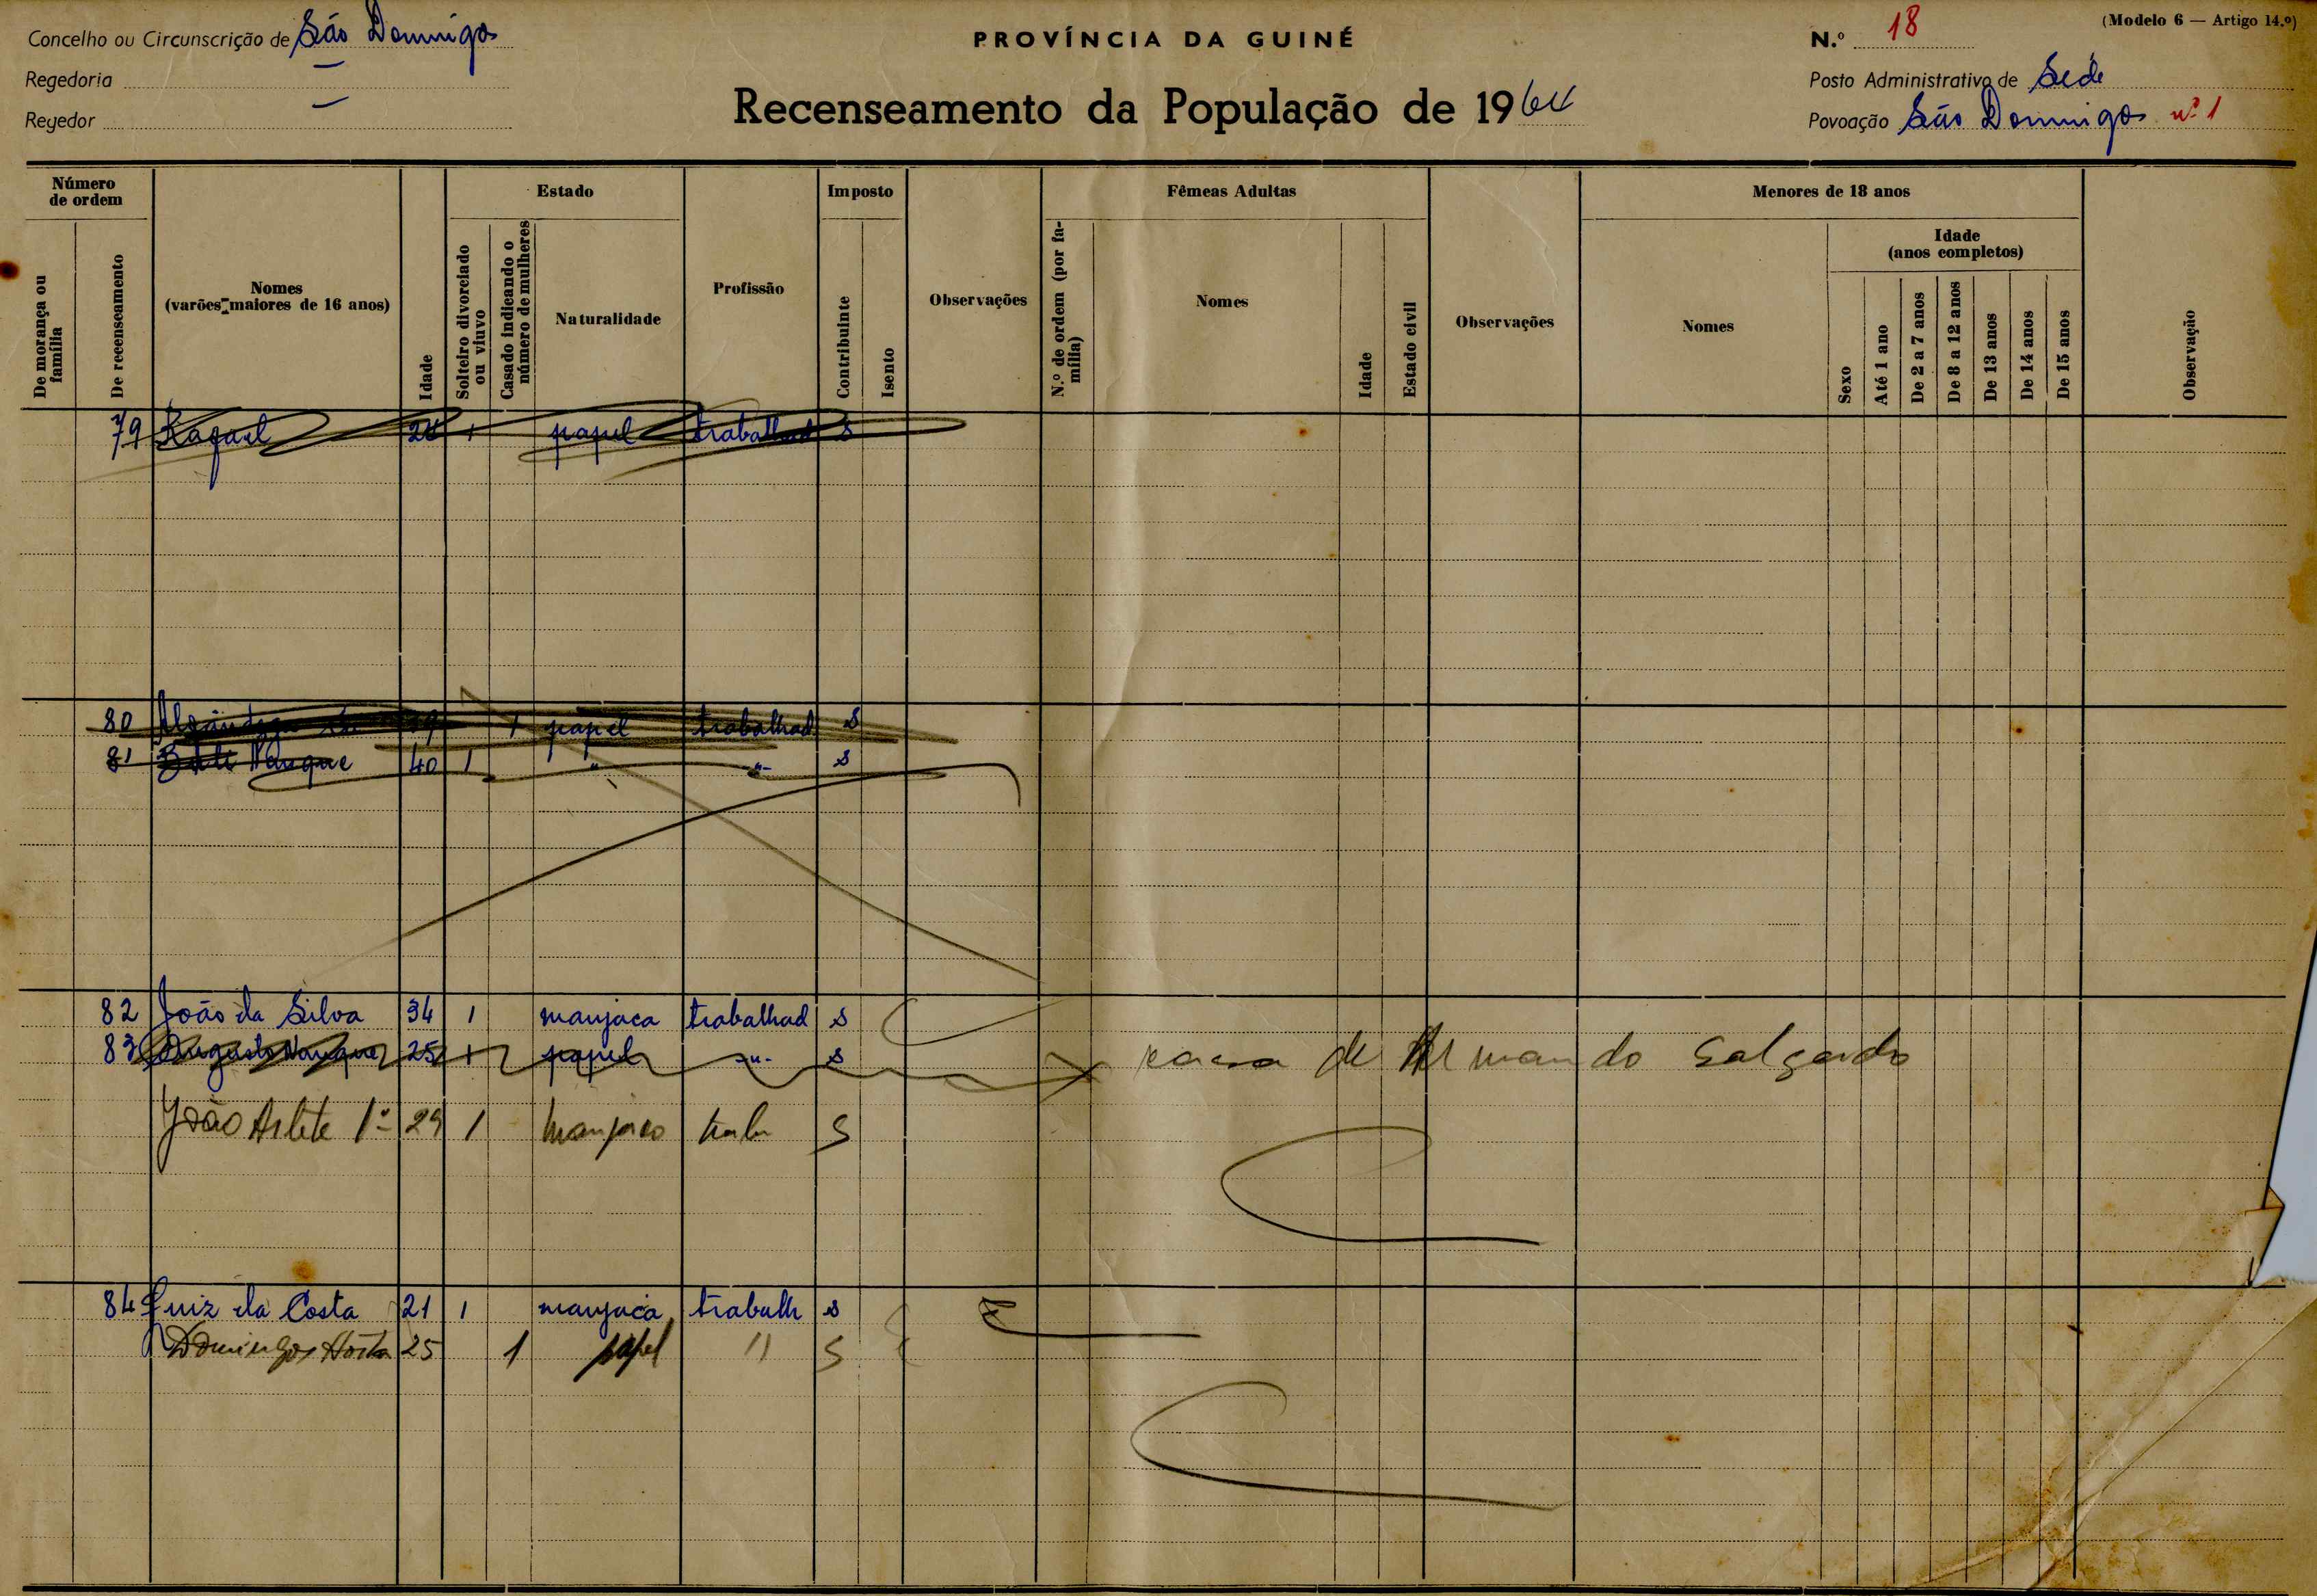 Concelho ou Circunscrição de São Domingos
Regedoria —
Regedor —
PROVÍNCIA DA GUINÉ
Recenseamento da População de 1964
(Modelo 6 — Artigo 14.º)
N.º 18
Posto Administrativo de Sede
Povoação São Domingos nº 1
Número de ordem
De morança ou família
De recenseamento
Nomes
(varões maiores de 16 anos)
Idade
Estado
Solteiro divorciado ou viuvo
Casado indicando o número de mulheres
Naturalidade
Profissão
Imposto
Contribuinte
Isento
Observações
Fêmeas Adultas
N.º de ordem (por família)
Nomes
Idade
Estado civil
Observações
Menores de 18 anos
Nomes
Sexo
Idade
(anos completos)
Até 1 ano
De 2 a 7 anos
De 8 a 12 anos
De 13 anos
De 14 anos
De 15 anos
Observação
79 Raquel 1 papel trabalhad S
80 1 papel trabalhad S
81 Nanque 40 1 " -"- S
82 João da Silva 34 1 manjaca trabalhad S
83 Augusto Nanque 25 1 papel -"- S
casa de Armando Salgado
João Arlete 1º 29 1 manjaco S
84 Luiz da Costa 21 1 manjaca trabalh S
Domingos 25 1 papel " S